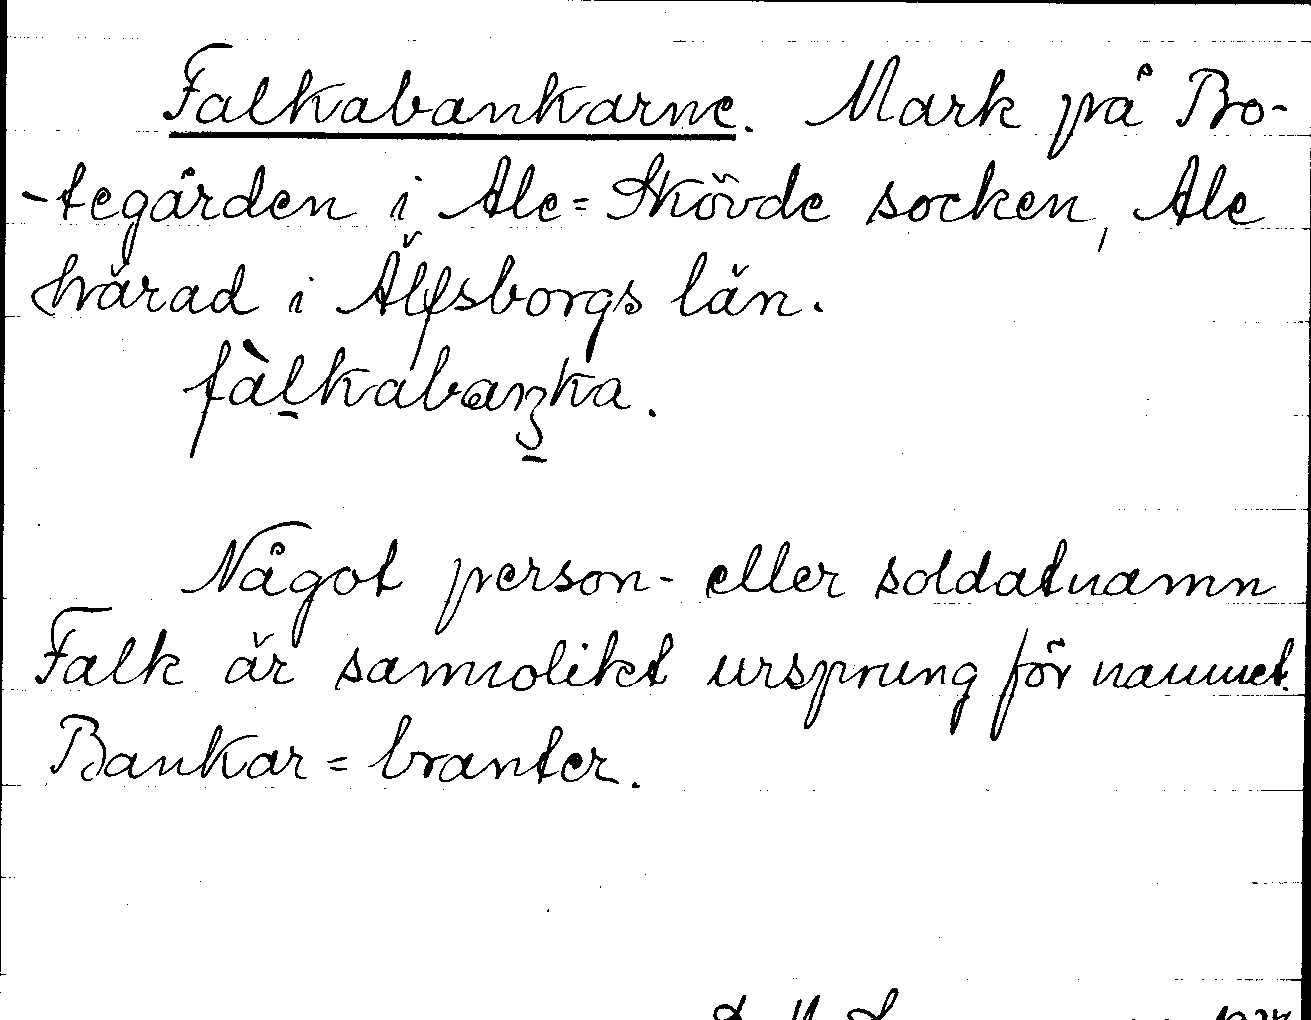 Falkabankarne. Mark på Bro-
-tegården i Ale=Skövde socken, Ale
härad i Älfsborgs län.
fàlkabaŋka.
Något person- eller soldatnamn
Falk är sannolikt ursprung för namnet.
Bankar = branter.